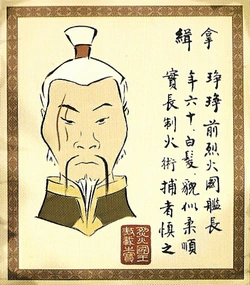 緝拿
琤琤前烈火國艦長
年六十白髮貌似柔順
實長制火術捕者慎之
烈火國王